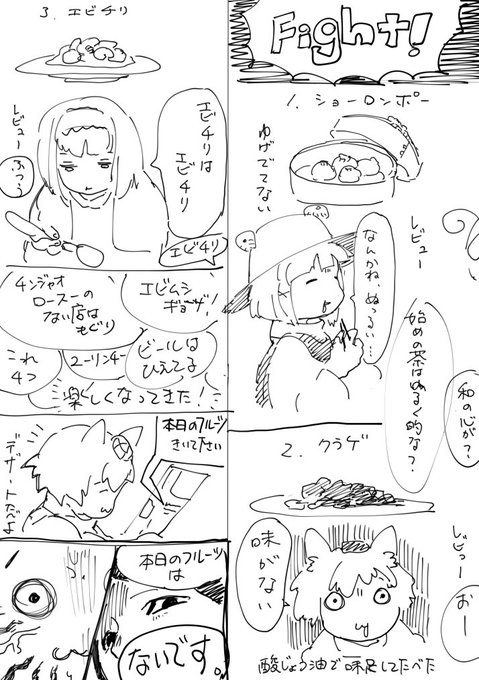 Fight!
1. ショーロンポー
ゆげでてない
レビュー
なんかね、ぬっるい…
始めの茶はぬるく的な?
和の心が?
2. クラゲ
レビュー
おー
味がない
酸じょう油で味足してたべた
3. エビチリ
レビュー
ふつう
エビチリは
エビチリ
エビチリ
チンジャオ
ロースーの
ない店は
もぐり
エビムシ
ギョーザ!
これ
4つ
ユーリンチー
ビールは
ひえてる
楽しくなってきた!
本日のフルーツ
きいて下さい
デザートたべよ
本日のフルーツ
は
ないです。